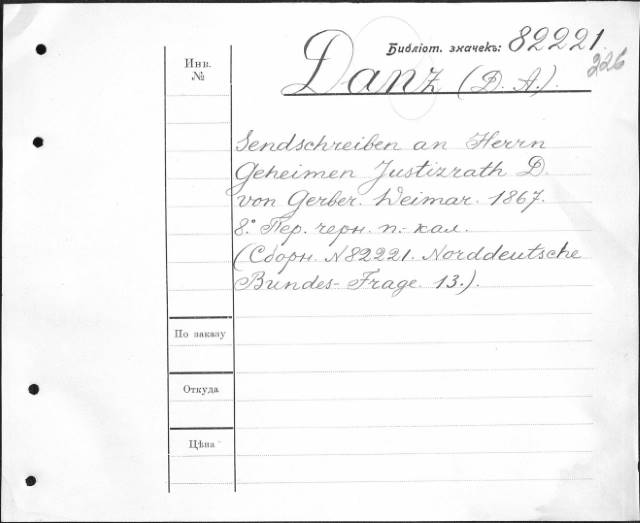 Библіот. значекъ: 82221.
226
Danz (D. A.).
Инв.
№
Sendschreiben an Herrn
Geheimen Justizrath D.
von Gerber. Weimar. 1867.
8.° Пер. черн. п.-кал.
(Сборн. N 82221. Norddeutsche
Bundes-Frage. 13.).
По заказу
Откуда
Цѣна